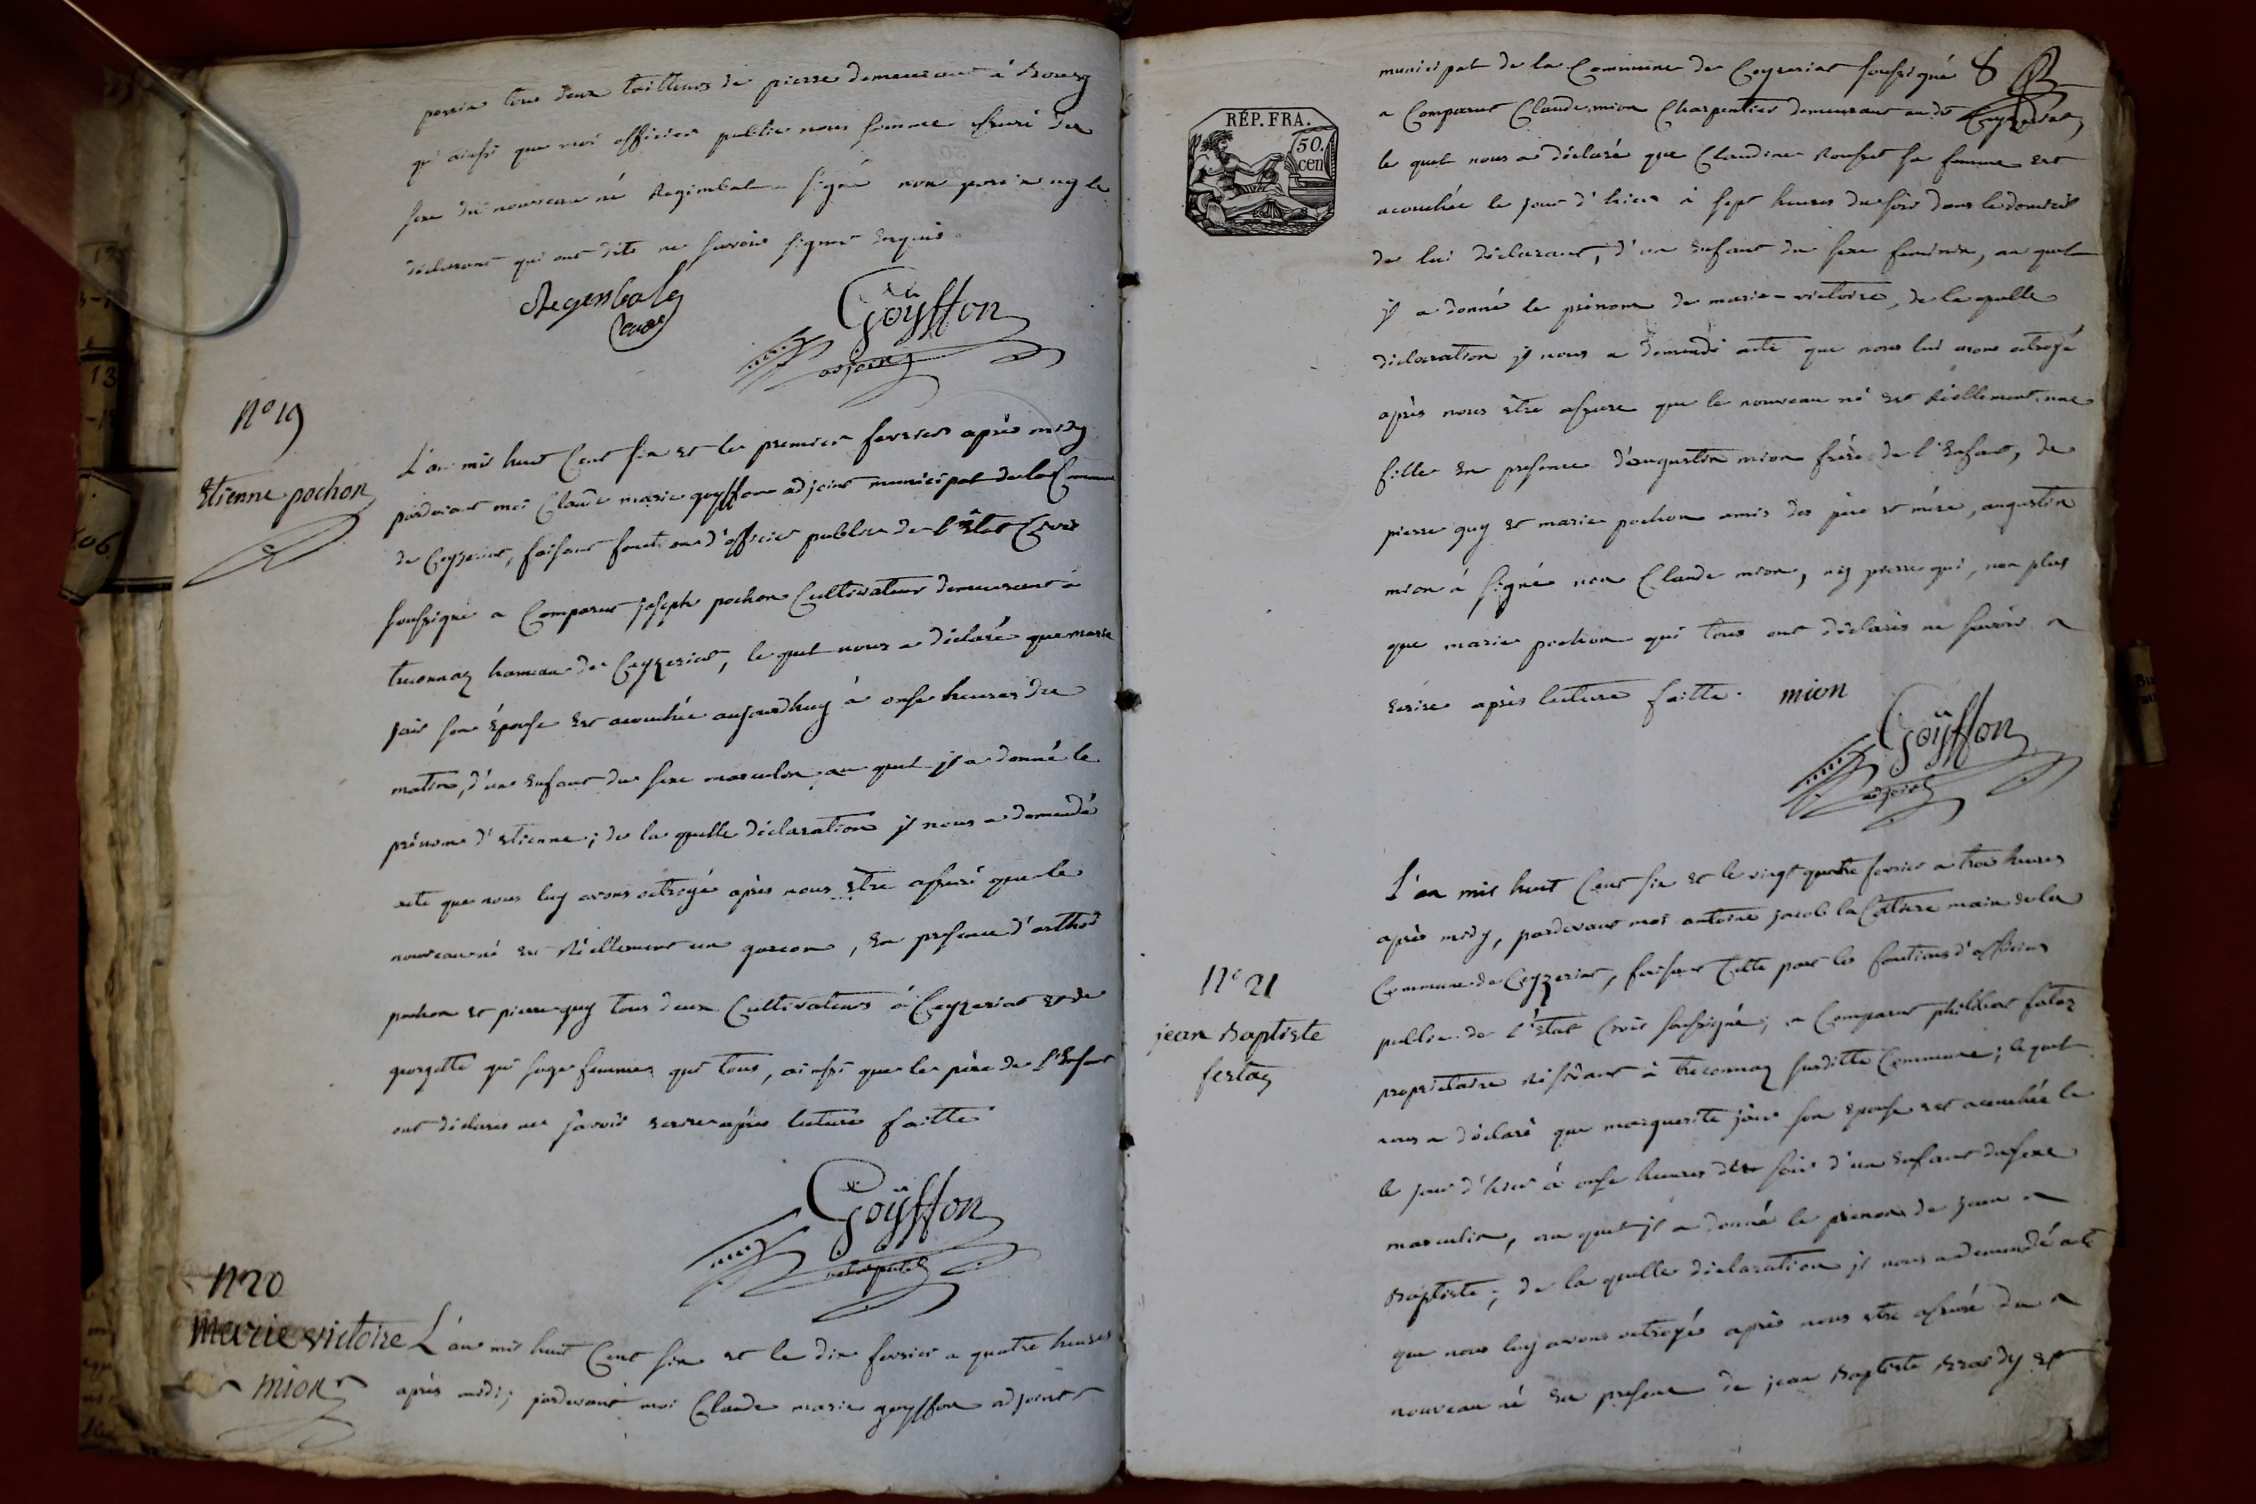 perrin tous deux tailleurs de pierre demeurant à Bourg
qui ainsi que moi officier public nous sommes assuré du
sexe du nouveau né Regimbal a signé non perrin ny le
déclarant qui ont dits ne savoir signer enquis
Regenbal
Goÿffon
adjoint
N° 19
Etienne pochon
L'an mil huit Cent six et le premier fevrier après midy
pardevant moi Claude marie goyffon adjoint municipal de la Commune
de Ceyzeriat, faisant fonction d'officier public de l'état Civil
soussigné a Comparut joseph pochon Cultivateur demeurant à
treconnaz hameau de Ceyzeriat, le quel nous a déclaré que marie
jair son épouse est acouchée aujourdhuy à onse heures du
matin, d'un enfant du sexe masculin au quel jl a donné le
prénom d'etienne; de la quelle déclaration jl nous a demandé
acte que nous luy avons octroyé après nous être assuré que le
nouveau né est réellement un garcon, en presence d'
pochon et pierre guy tous deux Cultivateurs à Ceyzeriat et de
georgette gui sage femme qui tous, ainsi que le père de l'enfant
ont déclarés ne savoir ecrire après lecture faitte
Goÿffon
N° 20
Marie victoire
mion
L'an mil huit Cent six et le dix fevrier a quatre heures
après midi; pardevant moi Claude marie goyffon adjoint
municipal de la Commune de Ceyzeriat soussigné 8
a Comparut Claude mion Charpentier demeurant au dt Ceyzeriat
le quel nous a déclaré que Claudine Rousset sa femme est
acouchée le jour d'hier à sept heures du soir dans le domicil
de lui déclarant, d'un enfant du sexe feminin, au quel
jl a donné le prénom de marie-victoire, de la quelle
déclaration jl nous a demandé acte que nous lui avons octroyé
après nous être assuré que le nouveau né est réellement une
fille en presence d'augustin mion frère de l'enfant, de
pierre guy et marie pochon amis des père et mère, augustin
mion à signé non Claude mion, ny pierre gui, non plus
que marie pochon qui tous ont déclarés ne savoir
ecrire après lecture faitte.
mion
Goÿffon
adjoint
RÉP. FRA.
50. cen
N° 21
jean Baptiste
festaz
L'an mil huit Cent six et le vingt quatre fevrier a trois heures
après midy, pardevant moi antoine jacob la Cottiere maire de la
Commune de Ceyzeriat, faisant Cette part les fonctions d'officier
public de l'état Civil soussigné; a Comparut philibert festaz
propriétaire résidant à treconnaz susditte Commune; le quel
nous a déclaré que marguerite jair son épouse est acouchée le
le jour d'hier à onse heures du soir d'un enfant du sexe
masculin, au quel jl a donné le prenom de jean
Baptiste; de la quelle déclaration jl nous a demandé acte
que nous luy avons octroyé après nous etre assuré du
nouveau né en presence de jean Baptiste et